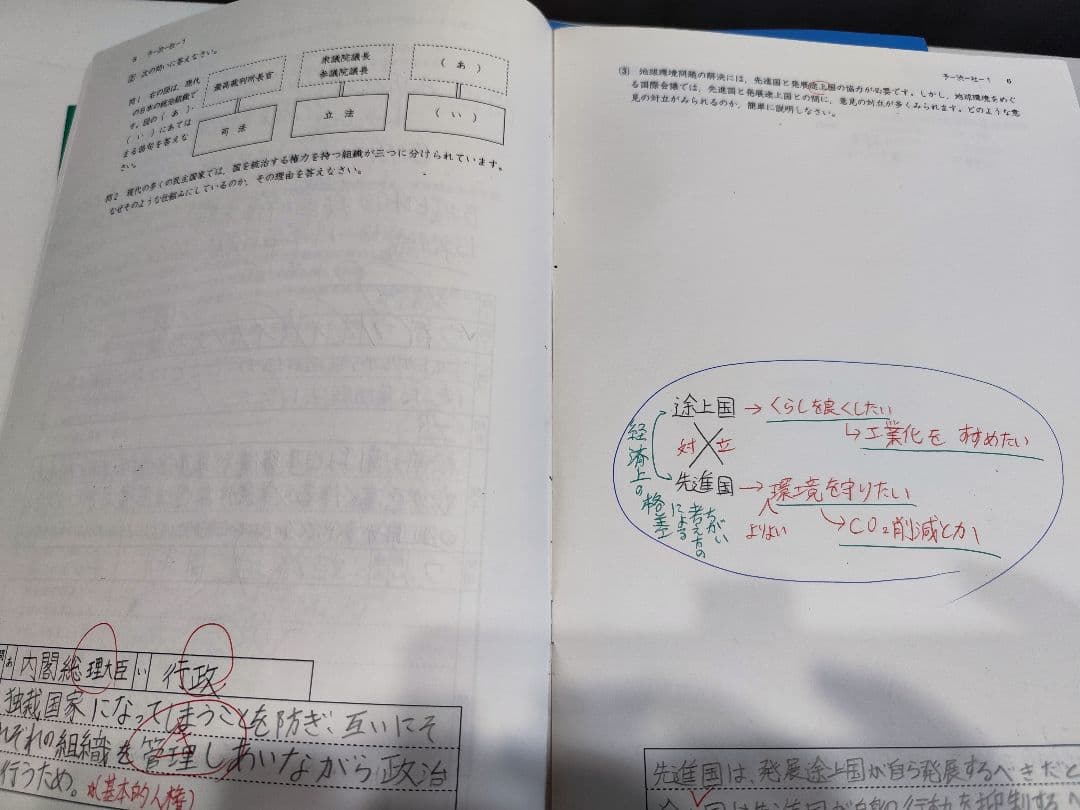 5 予-渋-社-1
② 次の問いに答えなさい。
問1 右の図は、現代
の日本の統治組織で
す。図の( あ )・
( い )にあては
まる語句を答えな
さい。
最高裁判所長官
司 法
衆議院議長
参議院議長
立 法
( あ )
( い )
問2 現代の多くの民主国家では、国を統治する権力を持つ組織が三つに分けられています。
なぜそのような仕組みにしているのか、その理由を答えなさい。
問
あ 内閣総理大臣 い 行政
独裁国家になってしまうことを防ぎ、互いにそ
れぞれの組織を管理しあいながら政治
行うため。
(基本的人権)
予-渋-社-1 6
③ 地球環境問題の解決には、先進国と発展途上国の協力が必要です。しかし、地球環境をめぐ
る国際会議では、先進国と発展途上国との間に、意見の対立が多くみられます。どのような意
見の対立がみられるのか、簡単に説明しなさい。
途上国 → くらしを良くしたい
↳ 工業化を すすめたい
対 立
先進国 → 環境を守りたい
よりよい
↳ CO₂削減とか
経済上の格差
による
考え方の
ちがい
先進国は、発展途上国が自ら発展するべきだと